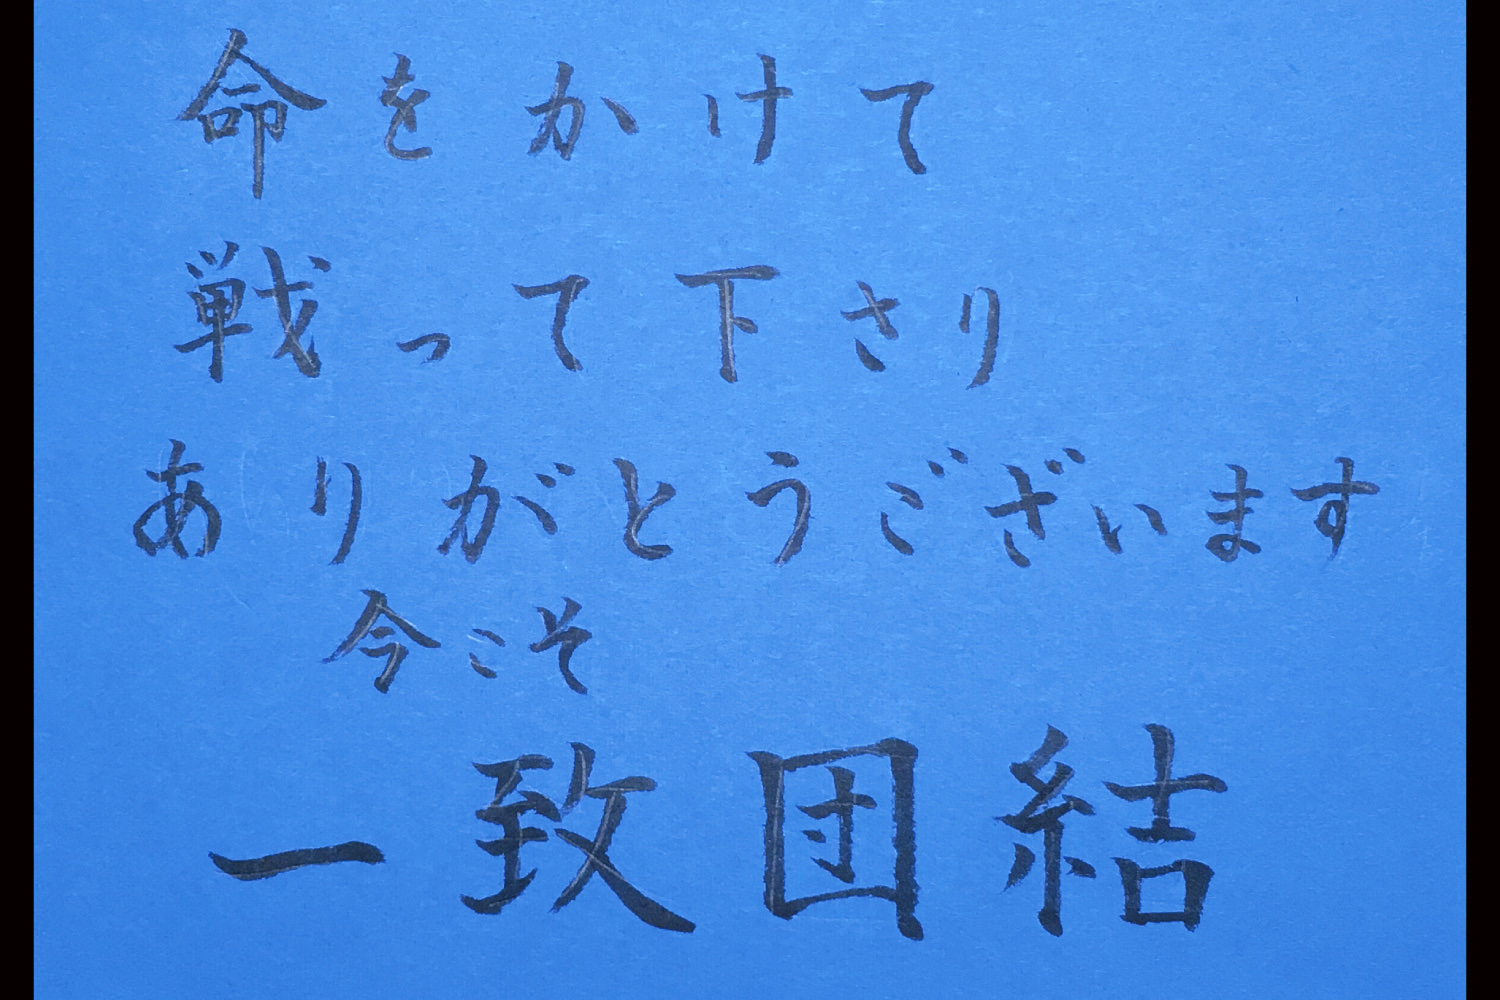 命をかけて
戦って下さり
ありがとうございます
今こそ
一致団結